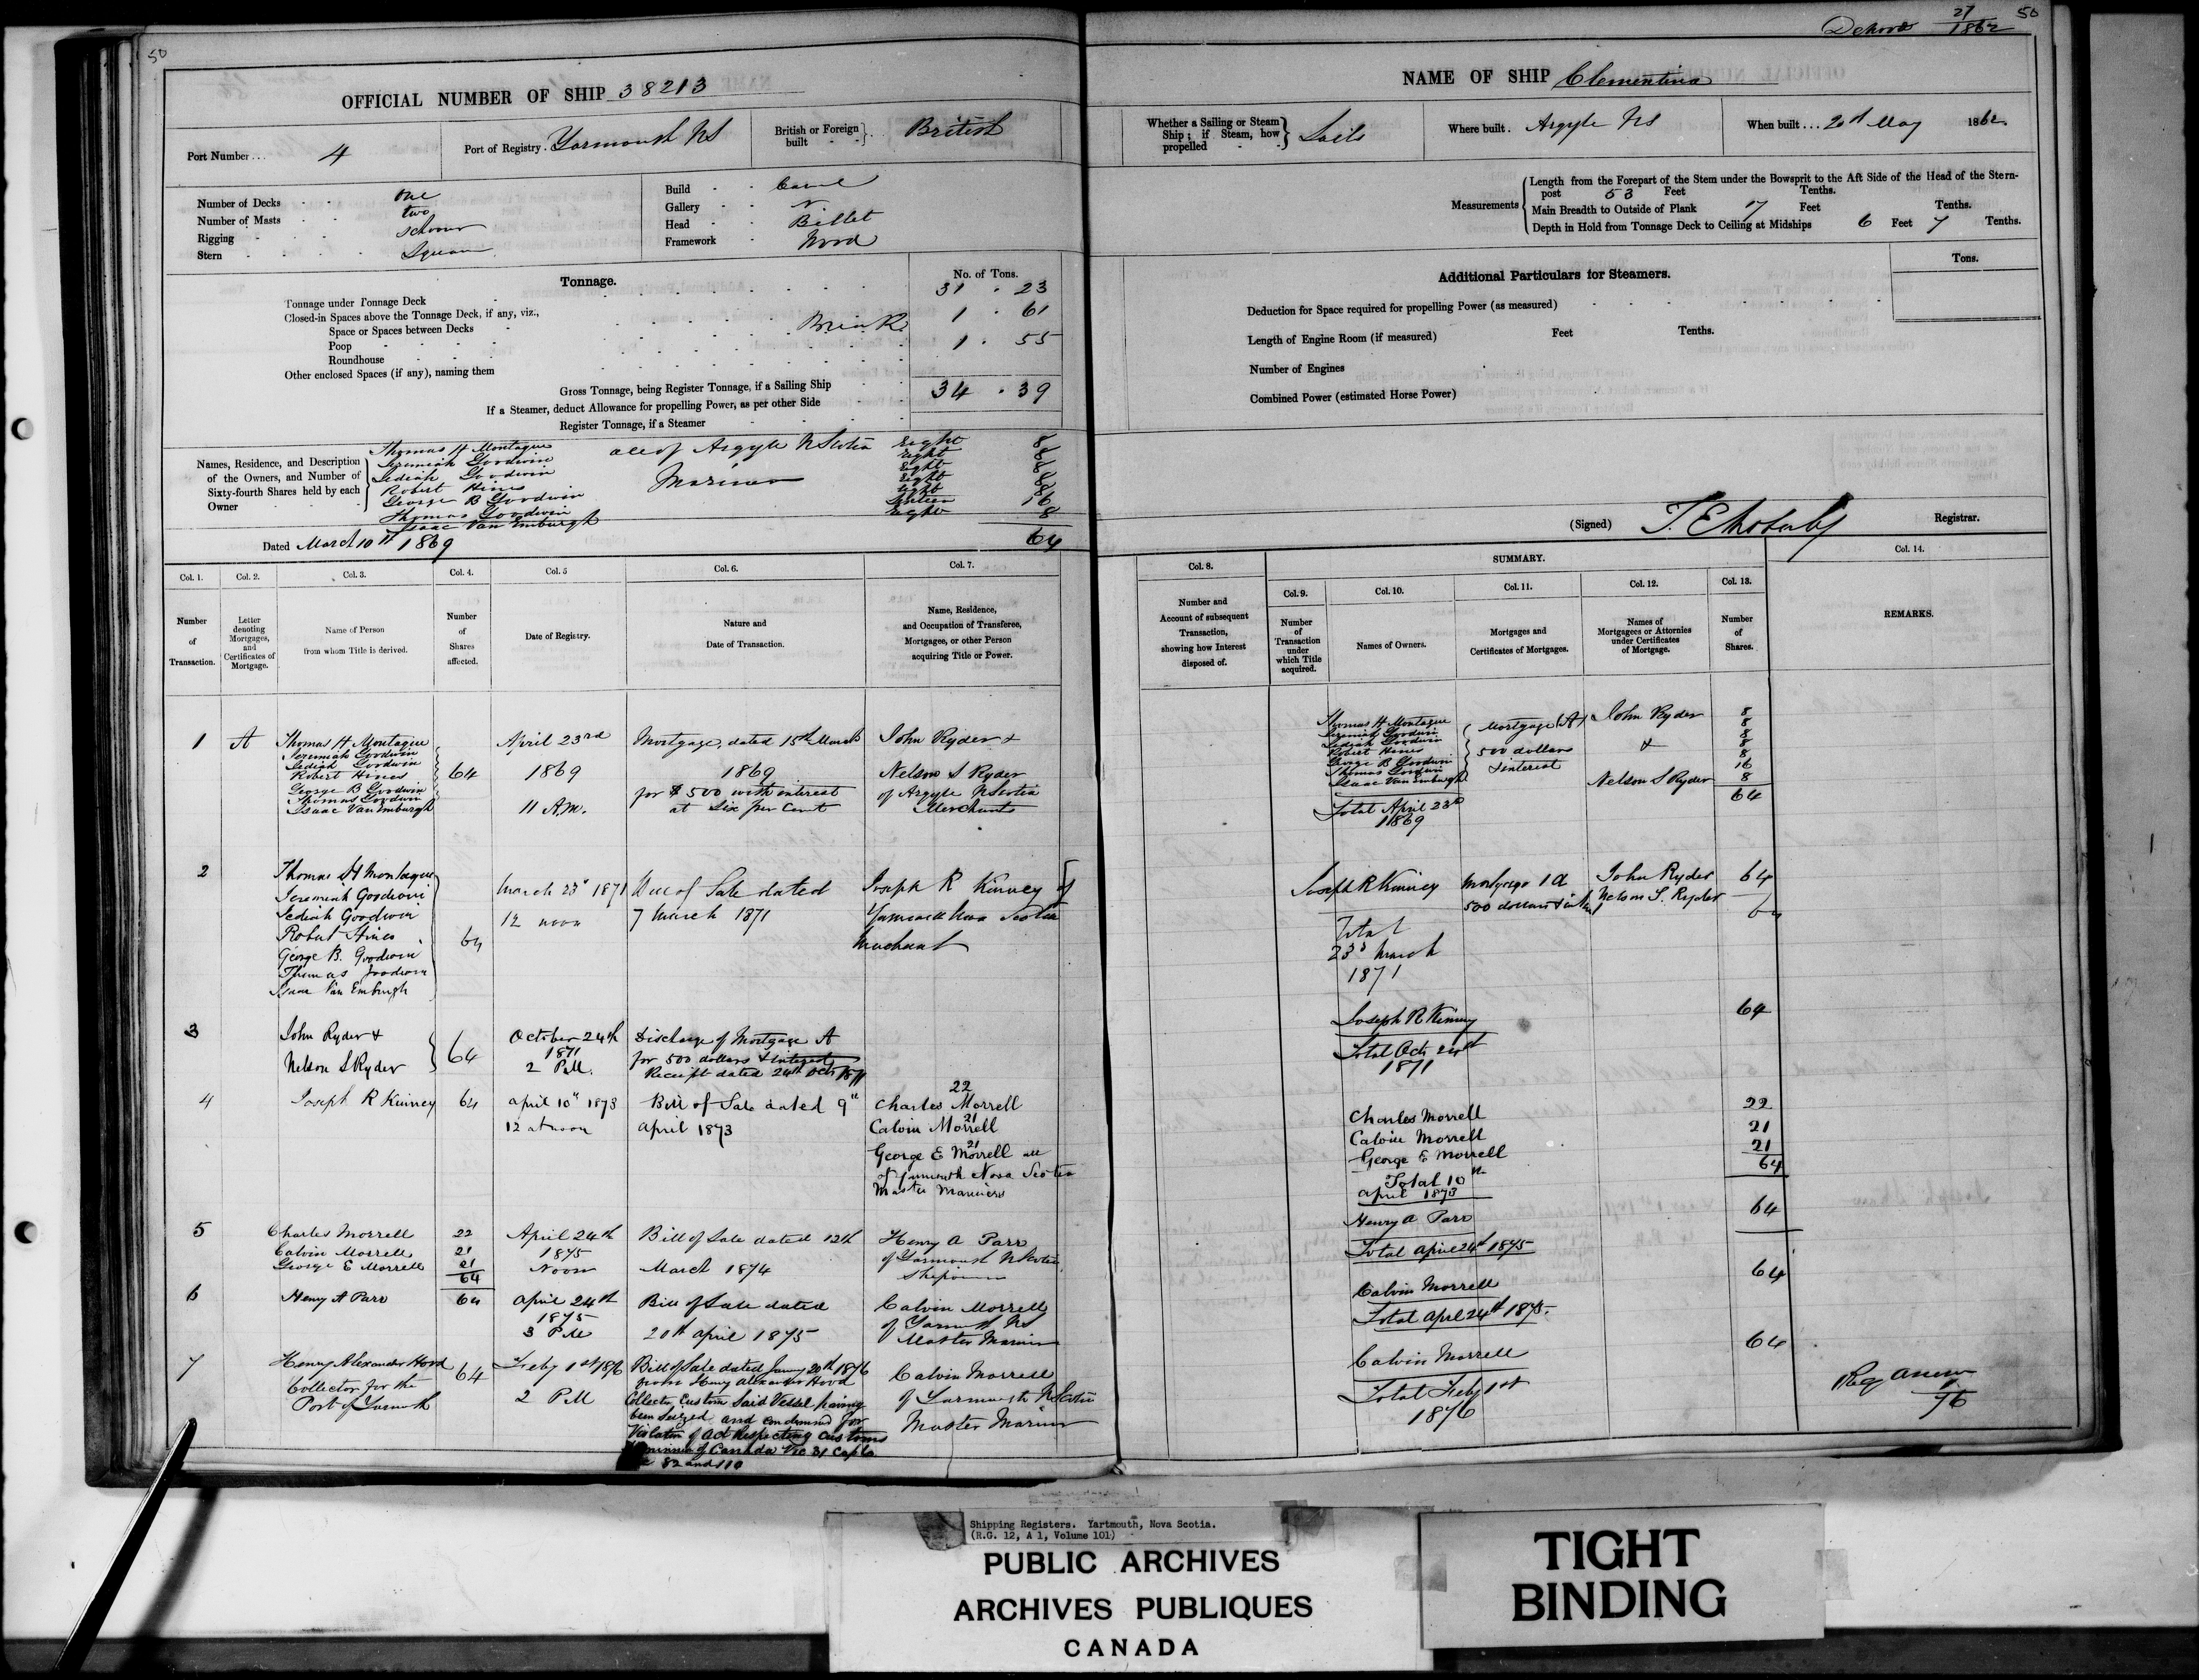 50
OFFICIAL NUMBER OF SHIP 38213
Port Number ... 4
Port of Registry. Yarmouth NS
British or Foreign built British
Number of Decks One
Number of Masts two
Rigging Schooner
Stern Square
Build Carvel
Gallery
Head Billet
Framework Wood
Tonnage.
No. of Tons.
Tonnage under Tonnage Deck 31 . 23
Closed-in Spaces above the Tonnage Deck, if any, viz.,
Space or Spaces between Decks Break 1 . 61
Poop
Roundhouse 1 . 55
Other enclosed Spaces (if any), naming them
Gross Tonnage, being Register Tonnage, if a Sailing Ship 34 . 39
If a Steamer, deduct Allowance for propelling Power, as per other Side
Register Tonnage, if a Steamer
Names, Residence, and Description of the Owners, and Number of Sixty-fourth Shares held by each Owner
Thomas H Montague all of Argyle N Scotia Eight 8
Jeremiah Goodwin Eight 8
Jediah Goodwin Mariners Eight 8
Robert Hines Eight 8
George B Goodwin Eight 8
Thomas Goodwin Sixteen 16
Isaac Van Emburgh Eight 8
Dated March 10th 1869 64
Col. 1. Col. 2. Col. 3. Col. 4. Col. 5 Col. 6. Col. 7.
Number of Transaction.
Letter denoting Mortgages, and Certificates of Mortgage.
Name of Person from whom Title is derived.
Number of Shares affected.
Date of Registry.
Nature and Date of Transaction.
Name, Residence, and Occupation of Transferee, Mortgagee, or other Person acquiring Title or Power.
1 A
Thomas H Montague
Jeremiah Goodwin
Jediah Goodwin
Robert Hines
George B Goodwin
Thomas Goodwin
Isaac Van Emburgh
64
April 23rd
1869
11 A.M.
Mortgage, dated 15th March
1869
for $500 with interest
at Six per Cent
John Ryder &
Nelson S Ryder
of Argyle N Scotia
Merchants
2
Thomas H Montague
Jeremiah Goodwin
Jediah Goodwin
Robert Hines
George B. Goodwin
Thomas Goodwin
Isaac Van Emburgh
64
March 23d 1871
12 noon
Bill of Sale dated
7 March 1871
Joseph R Kinney of
Yarmouth Nova Scotia
Merchant
3
John Ryder &
Nelson S Ryder
64
October 24th
1871
2 P.M.
Discharge of Mortgage A
for 500 dollars & interest
Receipt dated 24th Octr 1871
4
Joseph R Kinney
64
April 10th 1873
12 at noon
Bill of Sale dated 9th
April 1873
22
Charles Morrell
21
Calvin Morrell
21
George E Morrell all
of Yarmouth Nova Scotia
Master Mariners
5
Charles Morrell 22
Calvin Morrell 21
George E Morrell 21
64
April 24th
1875
Noon
Bill of Sale dated 12th
March 1874
Henry A Parr
of Yarmouth N Scotia
Shipowner
6
Henry A Parr
64
April 24th
1875
3 PM
Bill of Sale dated
20th April 1875
Calvin Morrell
of Yarmouth NS
Master Mariner
7
Henry Alexander Hood
Collector for the
Port of Yarmouth
64
Feby 1st 1876
2 PM
Bill of Sale dated Jany 20th 1876
from Henry Alexander Hood
Collector Custom Said Vessel having
been Seized and condemned for
Violation of act respecting customs
Dominion of Canada Vic 31 Cap 6
82 and 110
Calvin Morrell
of Yarmouth N Scotia
Master Mariner
27
1862
50
NAME OF SHIP Clementina
Whether a Sailing or Steam Ship; if Steam, how propelled Sails
Where built. Argyle NS
When built ... 20th May 1862
Measurements
Length from the Forepart of the Stem under the Bowsprit to the Aft Side of the Head of the Stern-
post 53 Feet Tenths.
Main Breadth to Outside of Plank 17 Feet Tenths.
Depth in Hold from Tonnage Deck to Ceiling at Midships 6 Feet 7 Tenths.
Additional Particulars for Steamers.
Tons.
Deduction for Space required for propelling Power (as measured)
Length of Engine Room (if measured) Feet Tenths.
Number of Engines
Combined Power (estimated Horse Power)
(Signed) Registrar.
Col. 8. SUMMARY. Col. 14.
Col. 9. Col. 10. Col. 11. Col. 12. Col. 13.
Number and Account of subsequent Transaction, showing how Interest disposed of.
Number of Transaction under which Title acquired.
Names of Owners.
Mortgages and Certificates of Mortgages.
Names of Mortgagees or Attornies under Certificates of Mortgage.
Number of Shares.
REMARKS.
Thomas H Montague 8
Jeremiah Goodwin 8
Jediah Goodwin 8
Robert Hines 8
George B Goodwin 8
Thomas Goodwin 16
Isaac Van Emburgh 8
Mortgage (A)
500 dollars
& interest
John Ryder
&
Nelson S Ryder
64
Total April 23d
1869
Joseph R Kinney
Mortgage 1 A
500 dollars & int
John Ryder
Nelson S. Ryder
64
64
Total
23d March
1871
Joseph R Kinney 64
Total Octr 24th
1871
Charles Morrell 22
Calvin Morrell 21
George E Morrell 21
64
Total 10th
April 1873
Henry A Parr 64
Total April 24th 1875
Calvin Morrell 64
Total April 24th 1875.
Calvin Morrell 64
Total Feby 1st
1876
Reg anew
1
76
Shipping Registers. Yartmouth, Nova Scotia.
(R.G. 12, A 1, Volume 101)
PUBLIC ARCHIVES
ARCHIVES PUBLIQUES
CANADA
TIGHT
BINDING